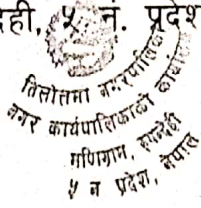 देही, ५ नं. प्रदेश
तिलोत्तमा नगरपालिका
नगर कार्यपालिकाको कार्यालय
मणिग्राम, रूपन्देही
५ न प्रदेश, नेपाल